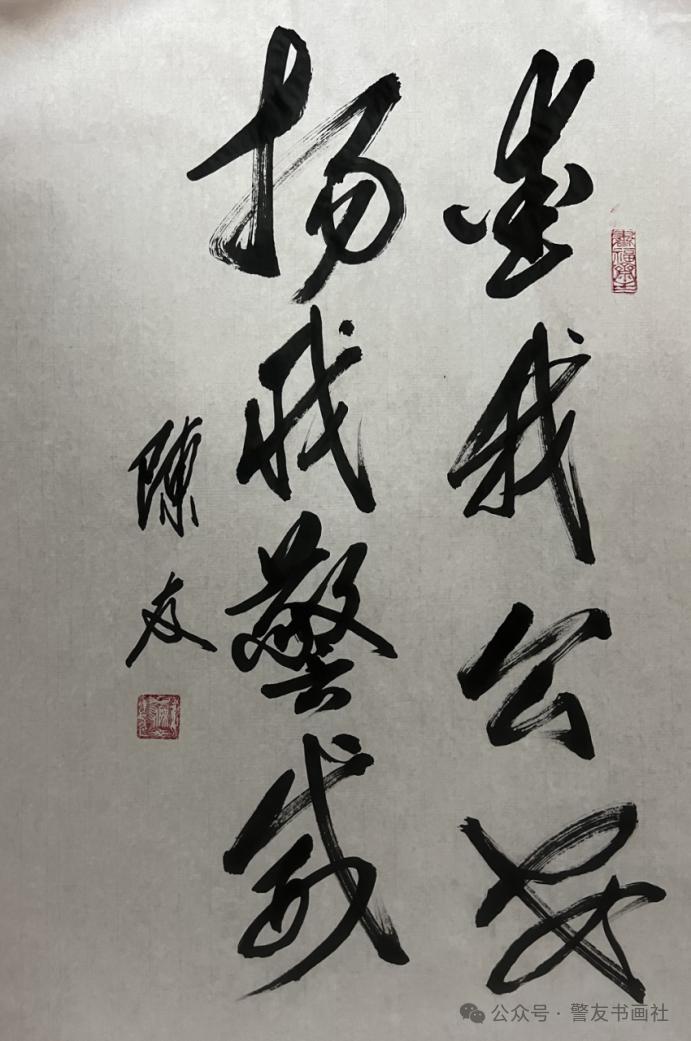 我公安
扬我警威
陳友
公众号 · 警友书画社